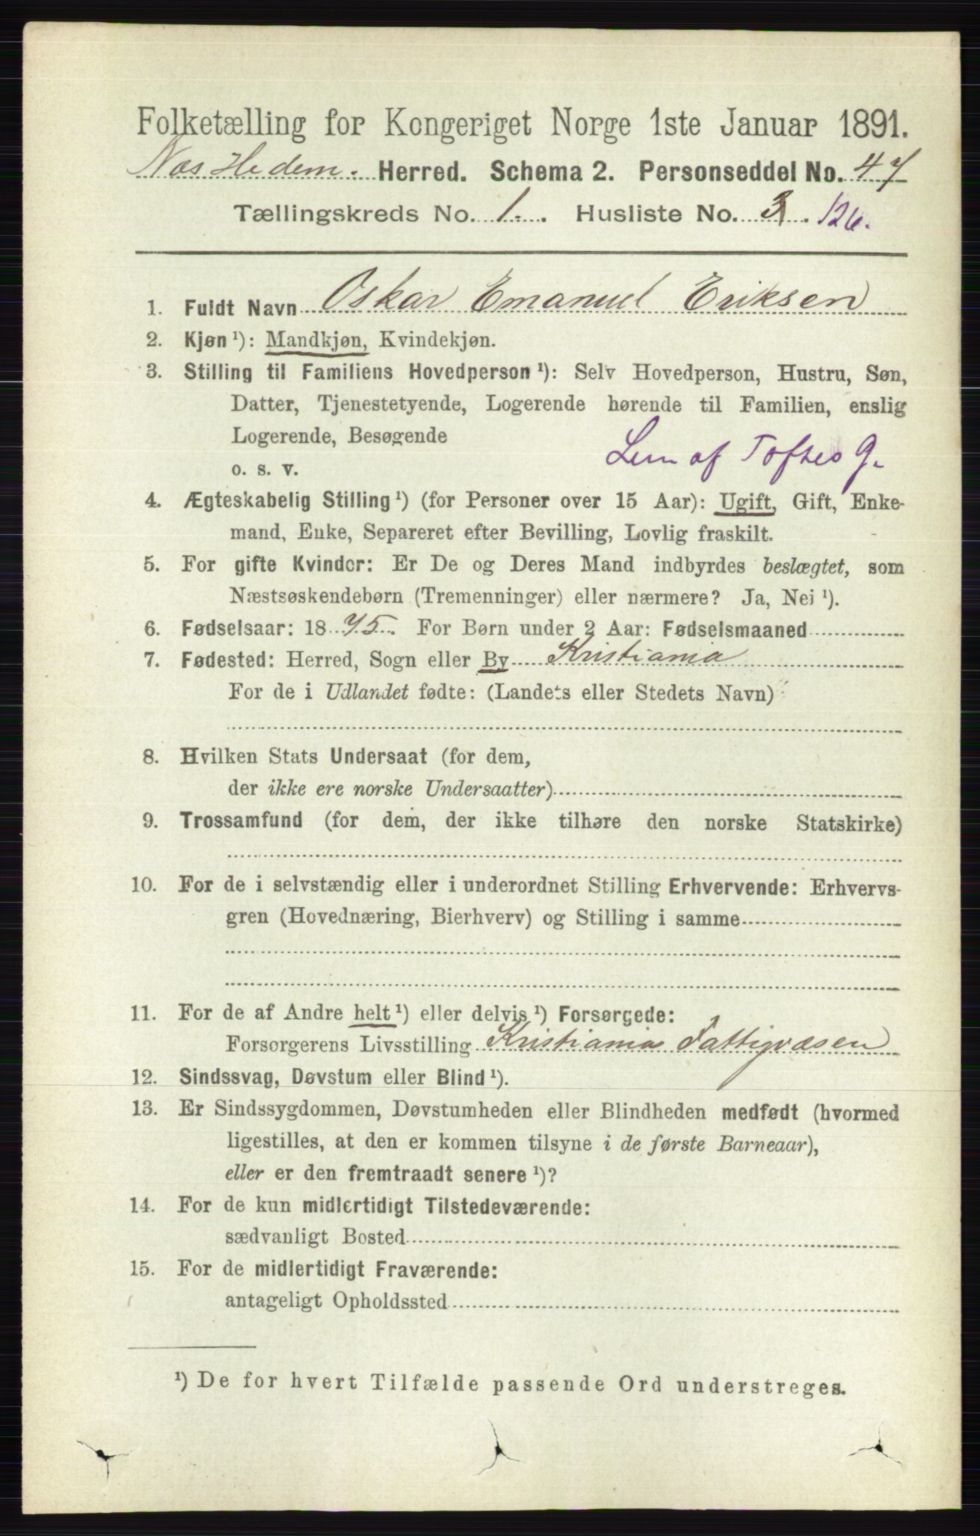 Folketælling for Kongeriget Norge 1ste Januar 1891.
Næs Hedem. Herred. Schema 2. Personseddel No. 47
Tællingskreds No. 1. Husliste No. 3. 126.
1. Fuldt Navn Oskar Emanuel Eriksen
2. Kjøn ¹): Mandkjøn, Kvindekjøn.
3. Stilling til Familiens Hovedperson ¹): Selv Hovedperson, Hustru, Søn,
Datter, Tjenestetyende, Logerende hørende til Familien, enslig
Logerende, Besøgende
o. s. v. Lem af Toftes G.
4. Ægteskabelig Stilling ¹) (for Personer over 15 Aar): Ugift, Gift, Enke-
mand, Enke, Separeret efter Bevilling, Lovlig fraskilt.
5. For gifte Kvinder: Er De og Deres Mand indbyrdes beslægtet, som
Næstsøskendebørn (Tremenninger) eller nærmere? Ja, Nei ¹).
6. Fødselsaar: 1875. For Børn under 2 Aar: Fødselsmaaned
7. Fødested: Herred, Sogn eller By Kristiania
For de i Udlandet fødte: (Landets eller Stedets Navn)
8. Hvilken Stats Undersaat (for dem,
der ikke ere norske Undersaatter)
9. Trossamfund (for dem, der ikke tilhøre den norske Statskirke)
10. For de i selvstændig eller i underordnet Stilling Erhvervende: Erhvervs-
gren (Hovednæring, Bierhverv) og Stilling i samme
11. For de af Andre helt ¹) eller delvis ¹) Forsørgede:
Forsørgerens Livsstilling Kristianias Fattigvæsen
12. Sindssvag, Døvstum eller Blind ¹).
13. Er Sindssygdommen, Døvstumheden eller Blindheden medfødt (hvormed
ligestilles, at den er kommen tilsyne i de første Barneaar),
eller er den fremtraadt senere ¹)?
14. For de kun midlertidigt Tilstedeværende:
sædvanligt Bosted
15. For de midlertidigt Fraværende:
antageligt Opholdssted
¹) De for hvert Tilfælde passende Ord understreges.